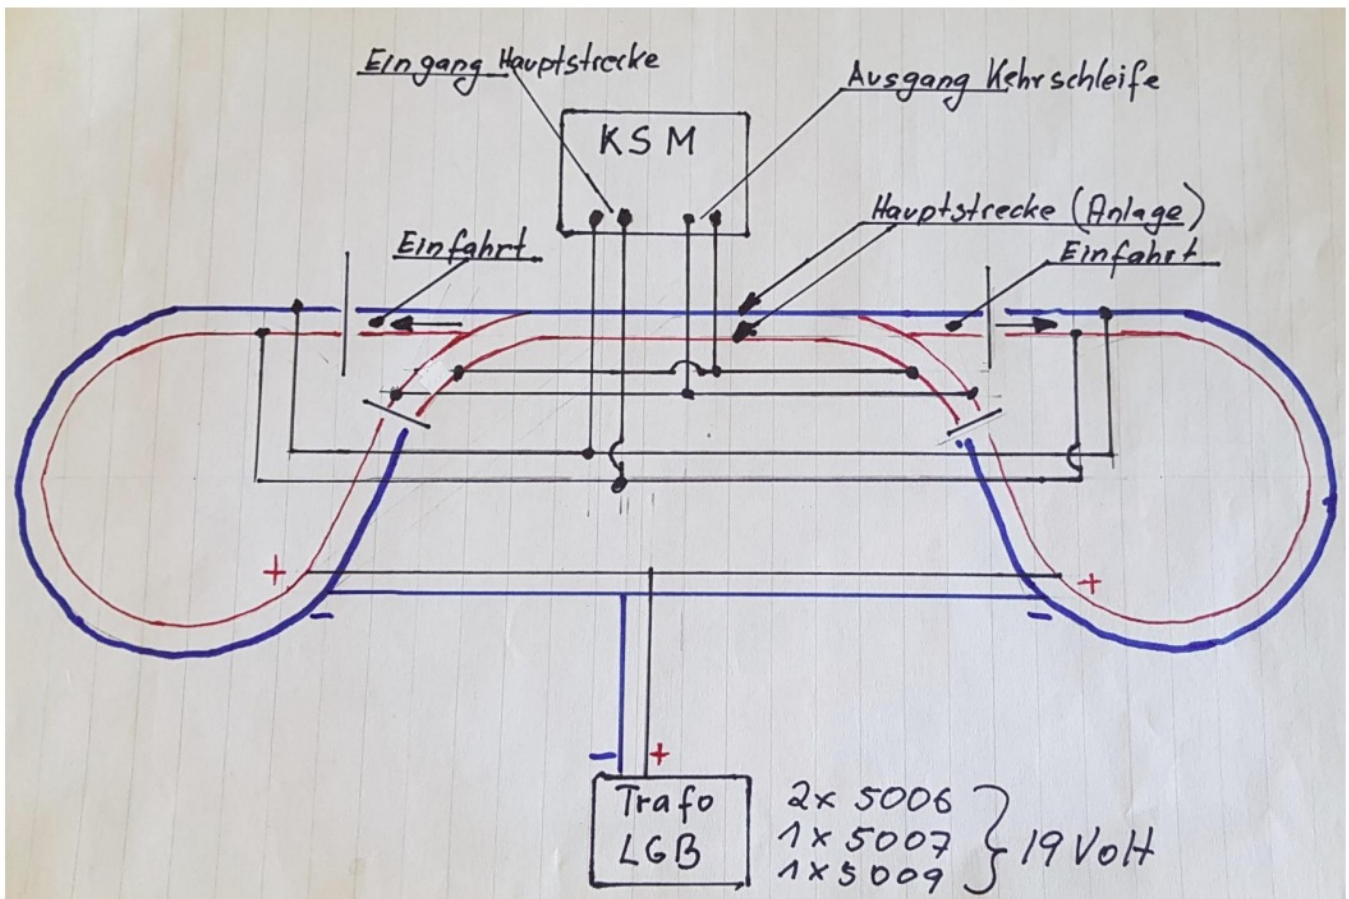 Eingang Hauptstrecke
Ausgang Kehrschleife
KSM
Hauptstrecke (Anlage)
Einfahrt
Einfahrt
+
+
-
-
- +
Trafo
LGB
2x 5006
1x 5007
1x5009
19 Volt